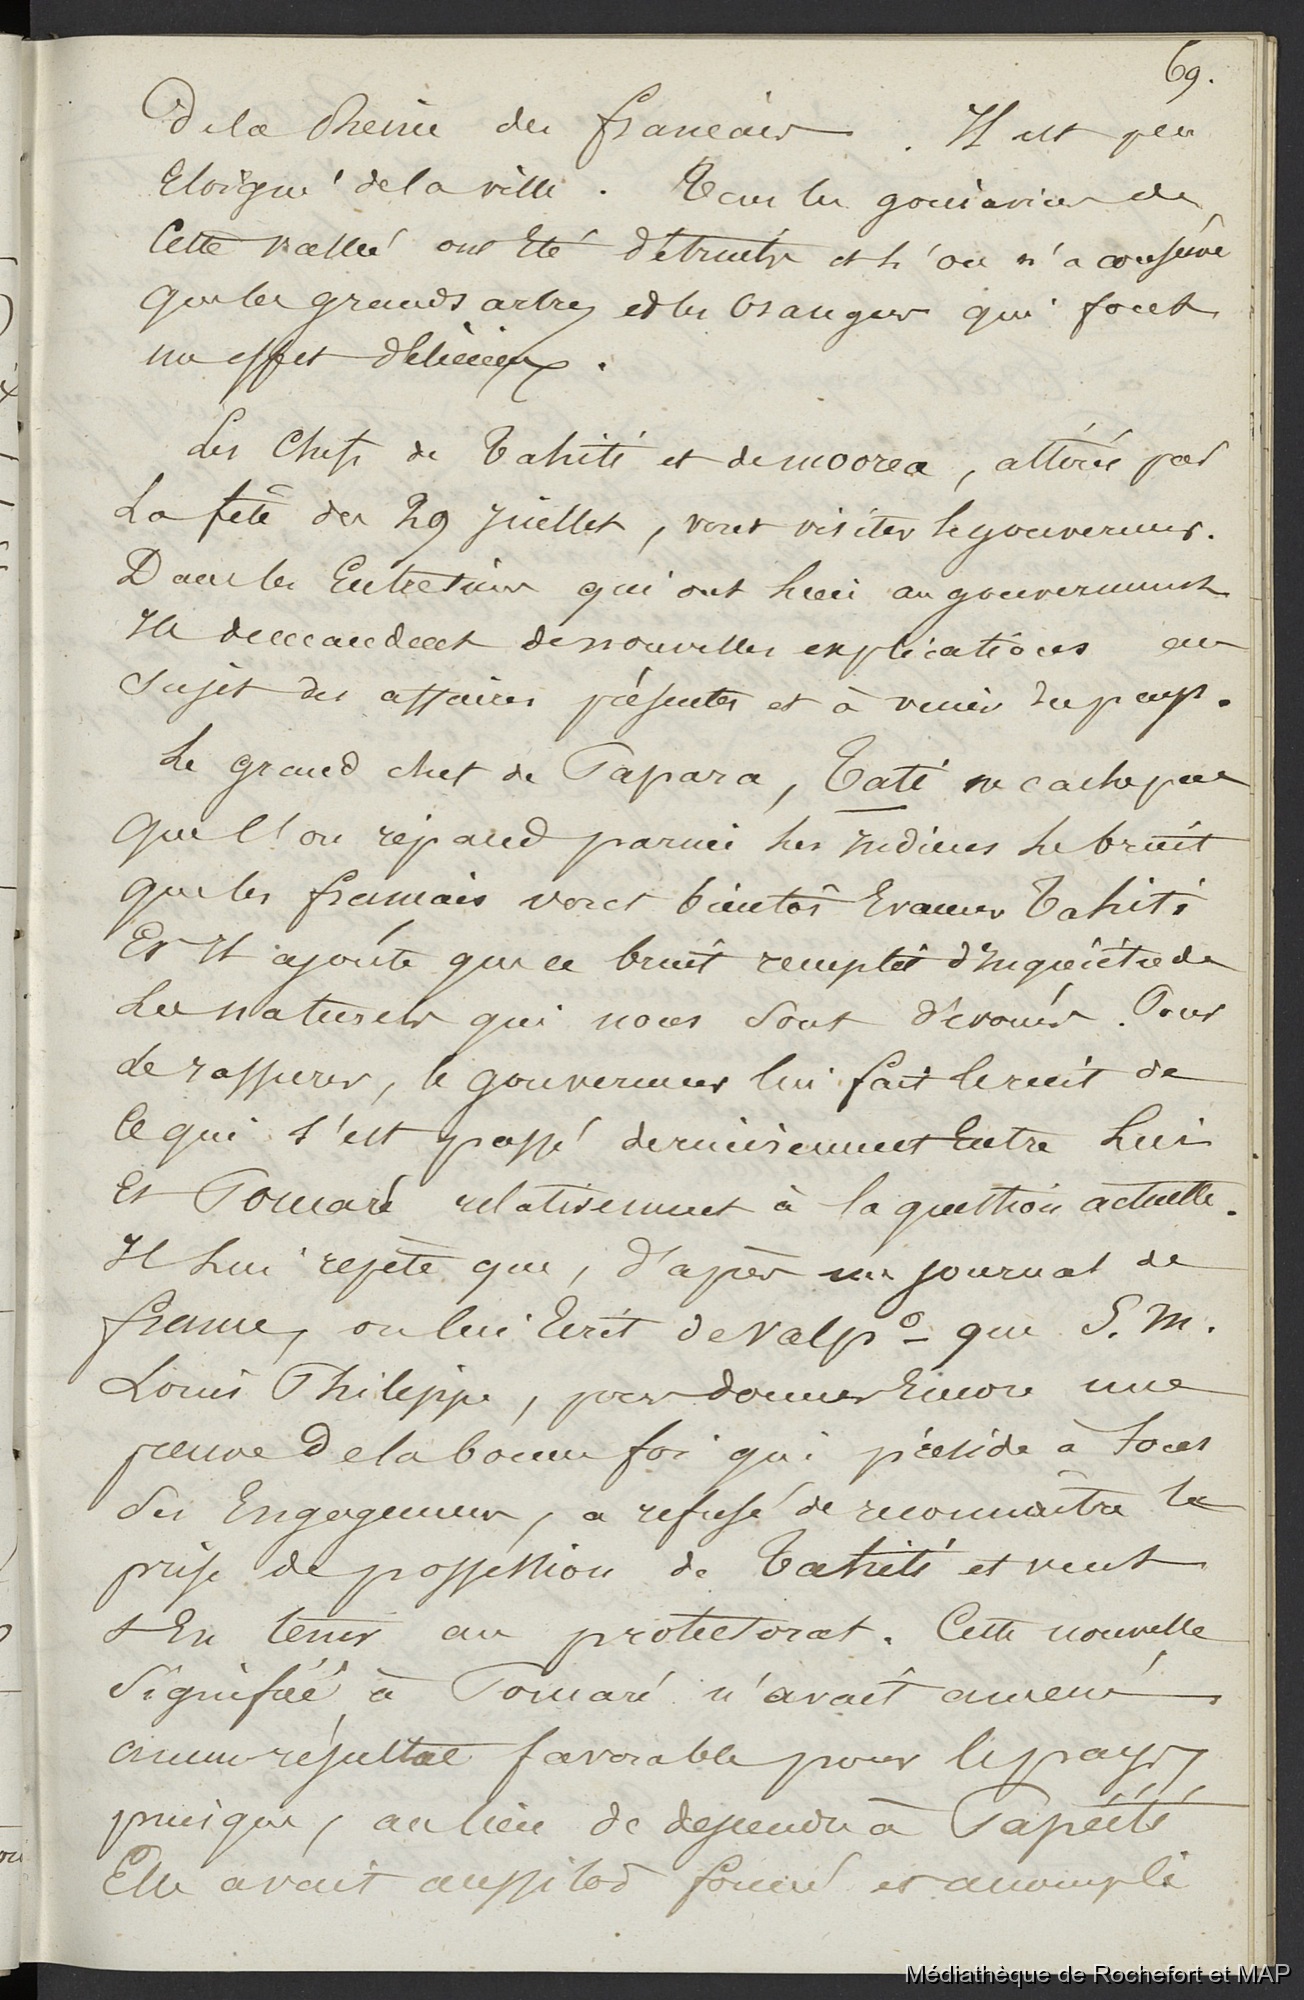 69.
De la Reine des français. Il est peu
Eloigné de la ville. Tous les goüiaviers de
Cette vallée ont Eté détruits et l'on n'a conservé
que les grands arbres et les Orangers qui font
un effet délicieux.
Les Chefs de Tahiti et de moorea, attirés par
La fête du 29 Juillet, vont visiter le gouverneur.
Dans les Entretiens qui ont lieu au gouvernement
Ils demandent de nouvelles explications au
Sujet des affaires présentes et à venir du pays.
Le grand chef de Papara, Tati ne cache pas
que l'on répand parmi les Indiens le bruit
que les français vont bientôt Evacuer Tahiti
Et Il ajoute que ce bruit remplit d'Inquiétude
Les naturels qui nous sont dévoués. Pour
le rassurer, le gouverneur lui fait le récit de
Ce qui s'est passé dernièrement Entre Lui
Et Pomaré relativement à la question actuelle.
Il Lui répète que, d'après un journal de
france, on lui Ecrit de Valpo que S. M.
Louis Philippe, pour donner Encore une
preuve De la bonne foi qui préside à tous
Ses Engagemens, a refusé de reconnaître la
prise de possession de Tahiti et veut
s'En tenir au protectorat. Cette nouvelle
Signifiée à Pomaré n'avait amené
aucun résultat favorable pour le pays,
puisque, au lieu de descendre à Papéïti
Elle avait aussitôt formé et accompli
Médiathèque de Rochefort et MAP